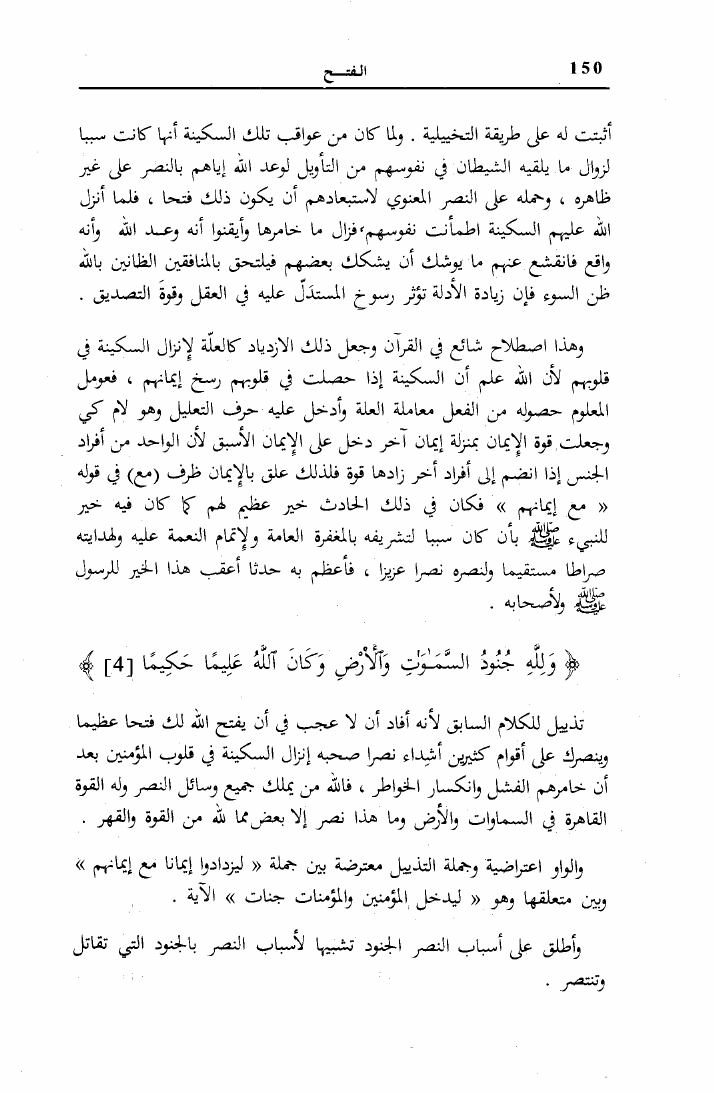 150 الفتح
أثبتت له على طريقة التخييلية . ولما كان من عواقب تلك السكينة أنها كانت سببا
لزوال ما يلقيه الشيطان في نفوسهم من التأويل لوعد الله إياهم بالنصر على غير
ظاهره ، وحمله على النصر المعنوي لاستبعادهم أن يكون ذلك فتحا ، فلما أنزل
الله عليهم السكينة اطمأنت نفوسهم، فزال ما خامرها وأيقنوا أنه وعد الله وأنه
واقع فانقشع عنهم ما يوشك أن يشكك بعضهم فيلتحق بالمنافقين الظانين بالله
ظن السوء فإن زيادة الأدلة تؤثر رسوخ المستدَلّ عليه في العقل وقوةَ التصديق .
وهذا اصطلاح شائع في القرآن وجعل ذلك الازدياد كالعلّة لإنزال السكينة في
قلوبهم لأن الله علم أن السكينة إذا حصلت في قلوبهم رسخ إيمانهم ، فعومل
المعلوم حصوله من الفعل معاملة العلة وأدخل عليه حرف التعليل وهو لام كي
وجعلت قوة الإيمان بمنزلة إيمان آخر دخل على الإيمان الأسبق لأن الواحد من أفراد
الجنس إذا انضم إلى أفراد أخر زادها قوة فلذلك علق بالإيمان ظرف (مع) في قوله
« مع إيمانهم » فكان في ذلك الحادث خير عظيم لهم كما كان فيه خير
للنبيء ﷺ بأن كان سببا لتشريفه بالمغفرة العامة ولإتمام النعمة عليه ولهدايته
صراطا مستقيما ولنصره نصرا عزيزا ، فأعظم به حدثا أعقب هذا الخير للرسول
ﷺ ولأصحابه .
﴿ وَلِلَّهِ جُنُودُ السَّمَـٰوَٰتِ وَٱلْأَرْضِ وَكَانَ ٱللَّهُ عَلِيمًا حَكِيمًا [4] ﴾
تذييل للكلام السابق لأنه أفاد أن لا عجب في أن يفتح الله لك فتحا عظيما
وينصرك على أقوام كثيرين أشداء نصرا صحبه إنزال السكينة في قلوب المؤمنين بعد
أن خامرهم الفشل وانكسار الخواطر ، فالله من يملك جميع وسائل النصر وله القوة
القاهرة في السماوات والأرض وما هذا نصر إلا بعض مما لله من القوة والقهر .
والواو اعتراضية وجملة التذييل معترضة بين جملة « ليزدادوا إيمانا مع إيمانهم »
وبين متعلقها وهو « ليدخل المؤمنين والمؤمنات جنات » الآية .
وأطلق على أسباب النصر الجنود تشبيها لأسباب النصر بالجنود التي تقاتل
وتنتصر .